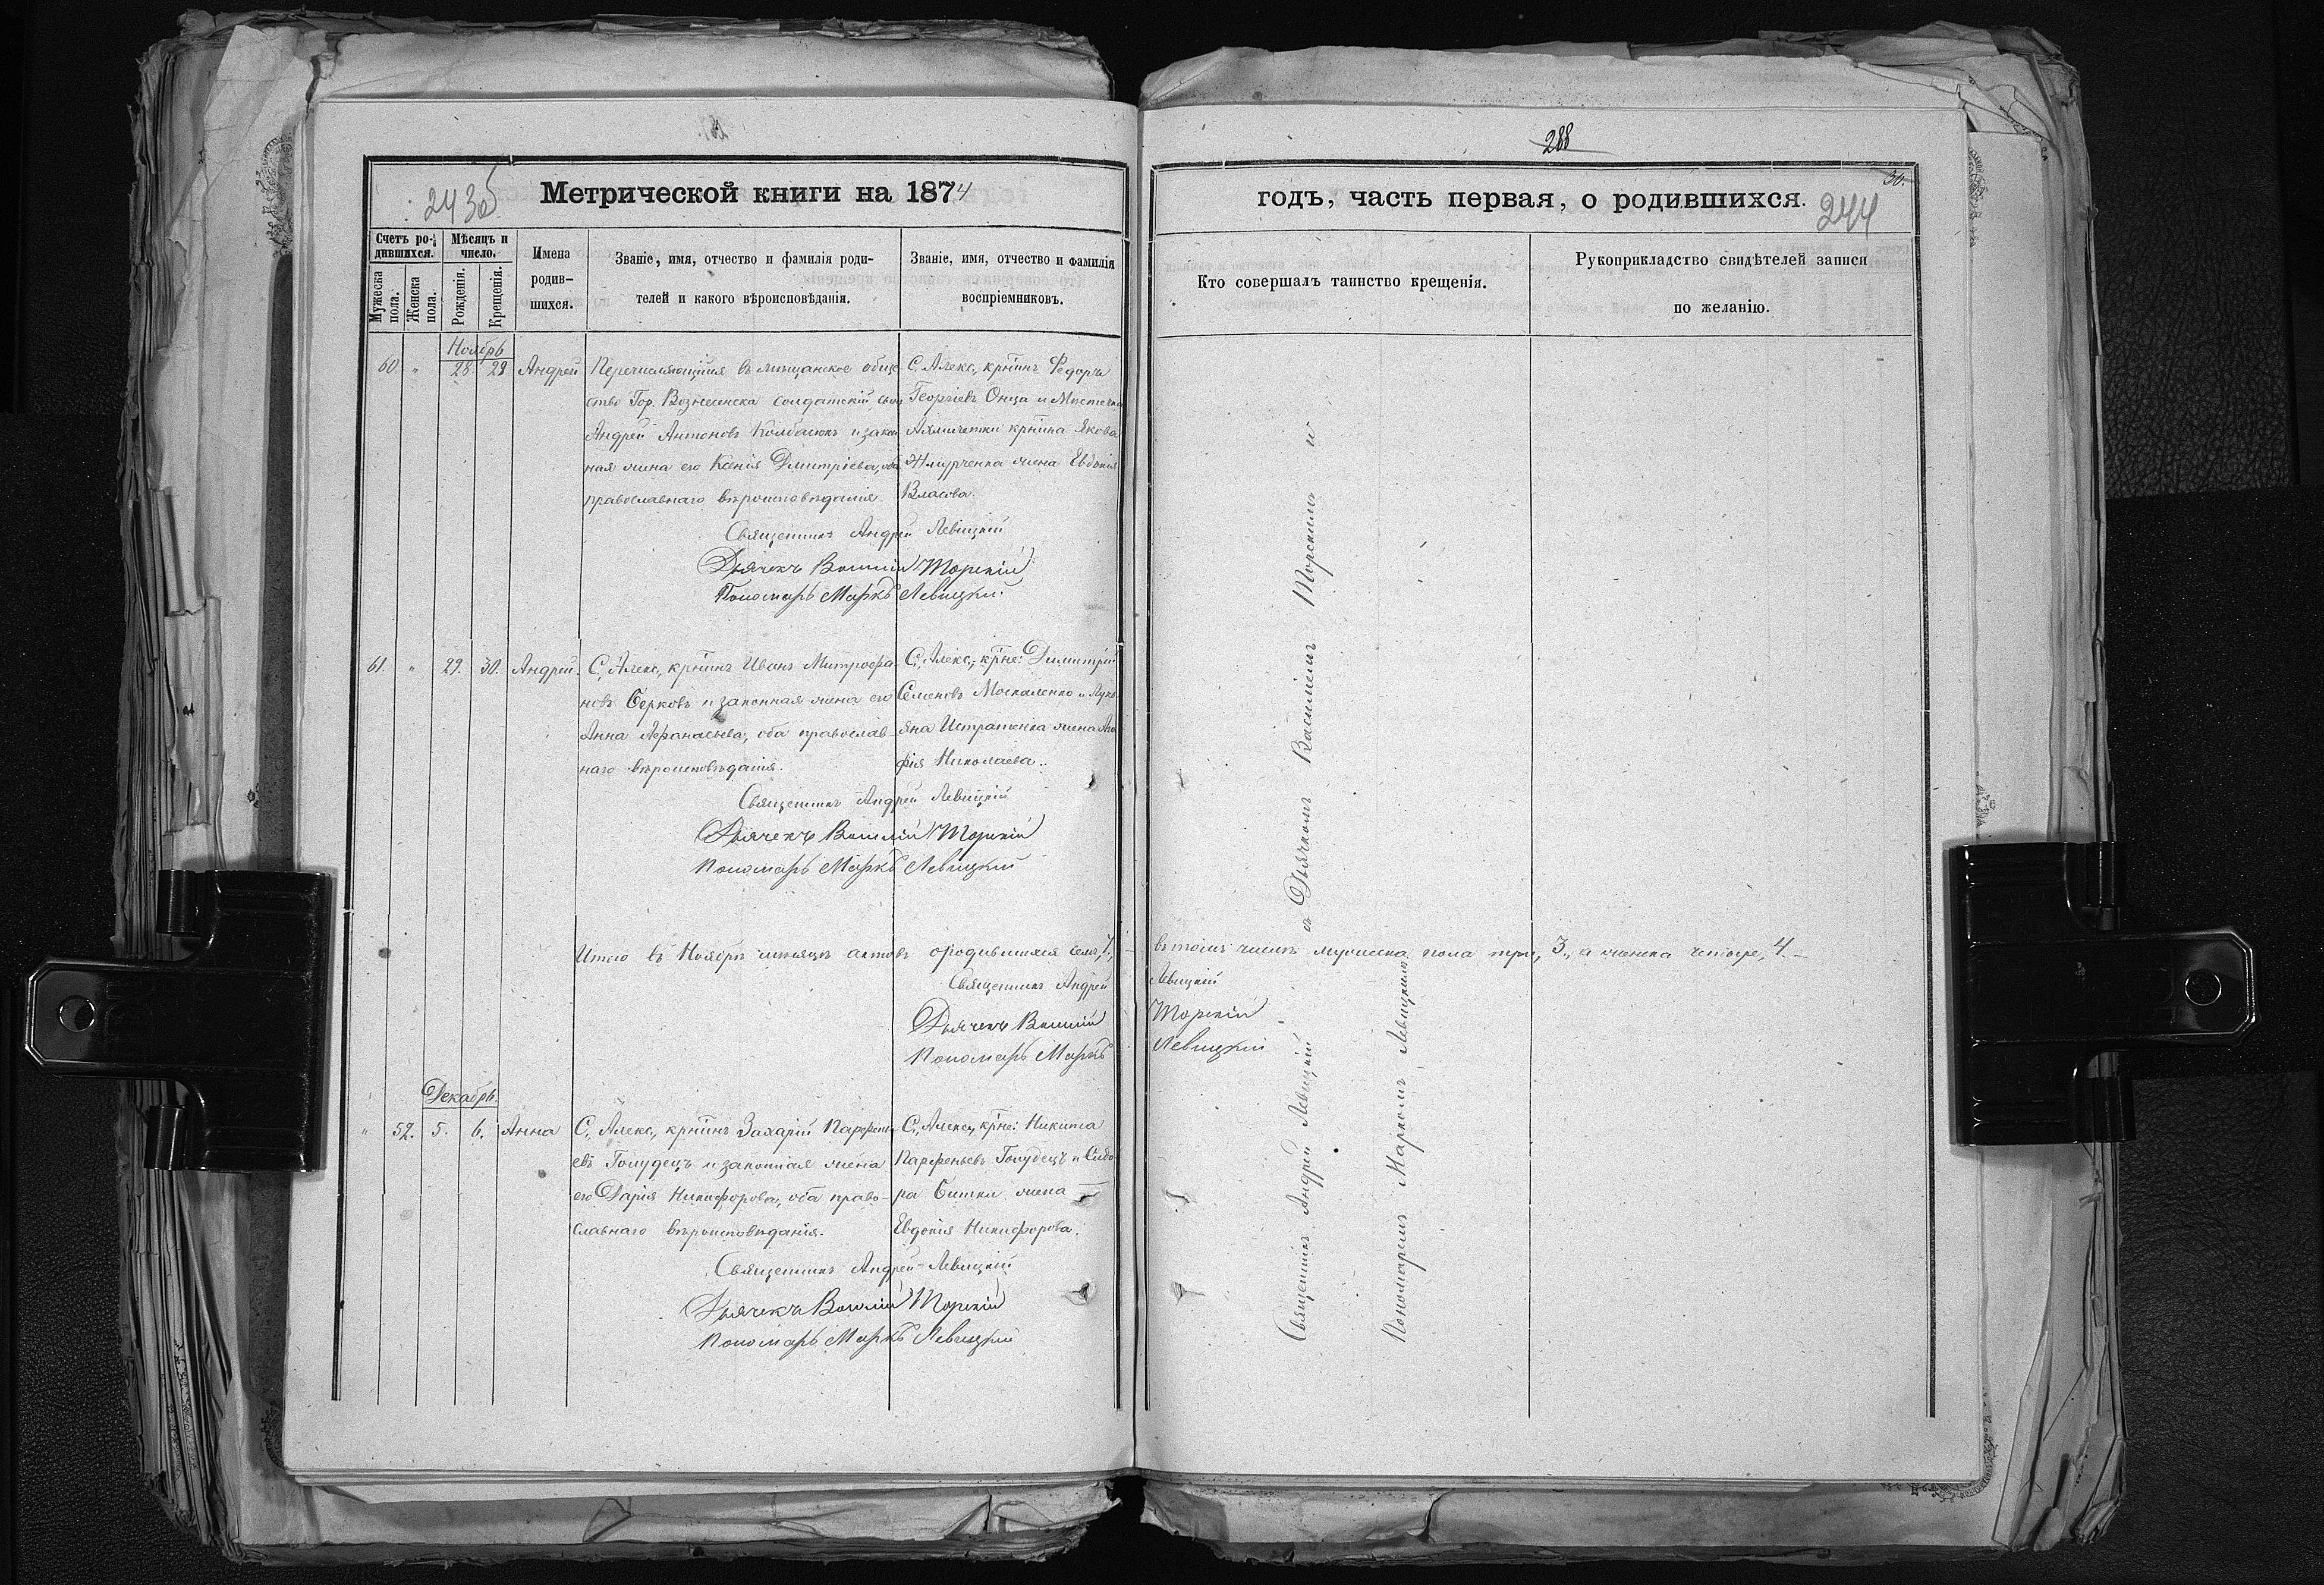 288
30.
243об
Метрической книги на 1874
годъ, часть первая, о родившихся.
244
Счетъ родившихся.
Мужеска пола.
Женска пола.
Мѣсяцъ и число.
Рожденія.
Крещенія.
Имена родившихся.
Званіе, имя, отчество и фамилія роди-
телей и какого вѣроисповѣданія.
Званіе, имя, отчество и фамилія
воспріемниковъ.
Кто совершалъ таинство крещенія.
Рукоприкладство свидѣтелей записи
по желанію.
Ноябрь
60. " 28. 29 Андрей
Перечисляющійся въ мѣщанское обще-
ство Гор. Вознесенска солдатскій сынъ
Андрей Антоновъ Колбасюкъ и закон
ная жена его Ксенія Димитріева, оба
православнаго вѣроисповѣданія.
С. Алекс. крнинъ Федоръ
Георгіевъ Онца и Мѣстечка
крнина Якова
жена Евдокія
Власова.
Священникъ Андрей Левицкій
Дьячекъ Василій Торскій
Пономарь Маркъ Левицкій
61. " 29. 30. Андрей.
С. Алекс. крнинъ Иванъ Митрофа-
новъ Серковъ и законная жена его
Анна Афанасьева, оба православ-
наго вѣроисповѣданія.
С. Алекс. крне: Димитрій
Семеновъ Москаленко и Лукь
яна Истратенка жена Ага
фія Николаева.
Священникъ Андрей Левицкій
Дьячекъ Василій Торскій
Пономарь Маркъ Левицкій
Итого въ Ноябрѣ мѣсяцѣ актовъ о родившихся семь, 7., – въ томъ числѣ мужеска пола три, 3., а женска четыре, 4. –
Священникъ Андрей Левицкій
Дьячекъ Василій Торскій
Пономарь Маркъ Левицкій
Декабрь.
" 52. 5. 6. Анна
С. Алекс. крнинъ Захарій Парфень
евъ Голудецъ и законная жена
его Дарія Никифорова, оба право-
славнаго вѣроисповѣданія.
С. Алекс. крне: Никита
Парфеньевъ Голудецъ и Сидо
ра Ситки жена
Евдокія Никифорова.
Священникъ Андрей Левицкій
Дьячекъ Василій Торскій
Пономарь Маркъ Левицкій
Священникъ Андрей Левицкій съ Дьячкомъ Василіемъ Торскимъ и
Пономаремъ Маркомъ Левицкимъ